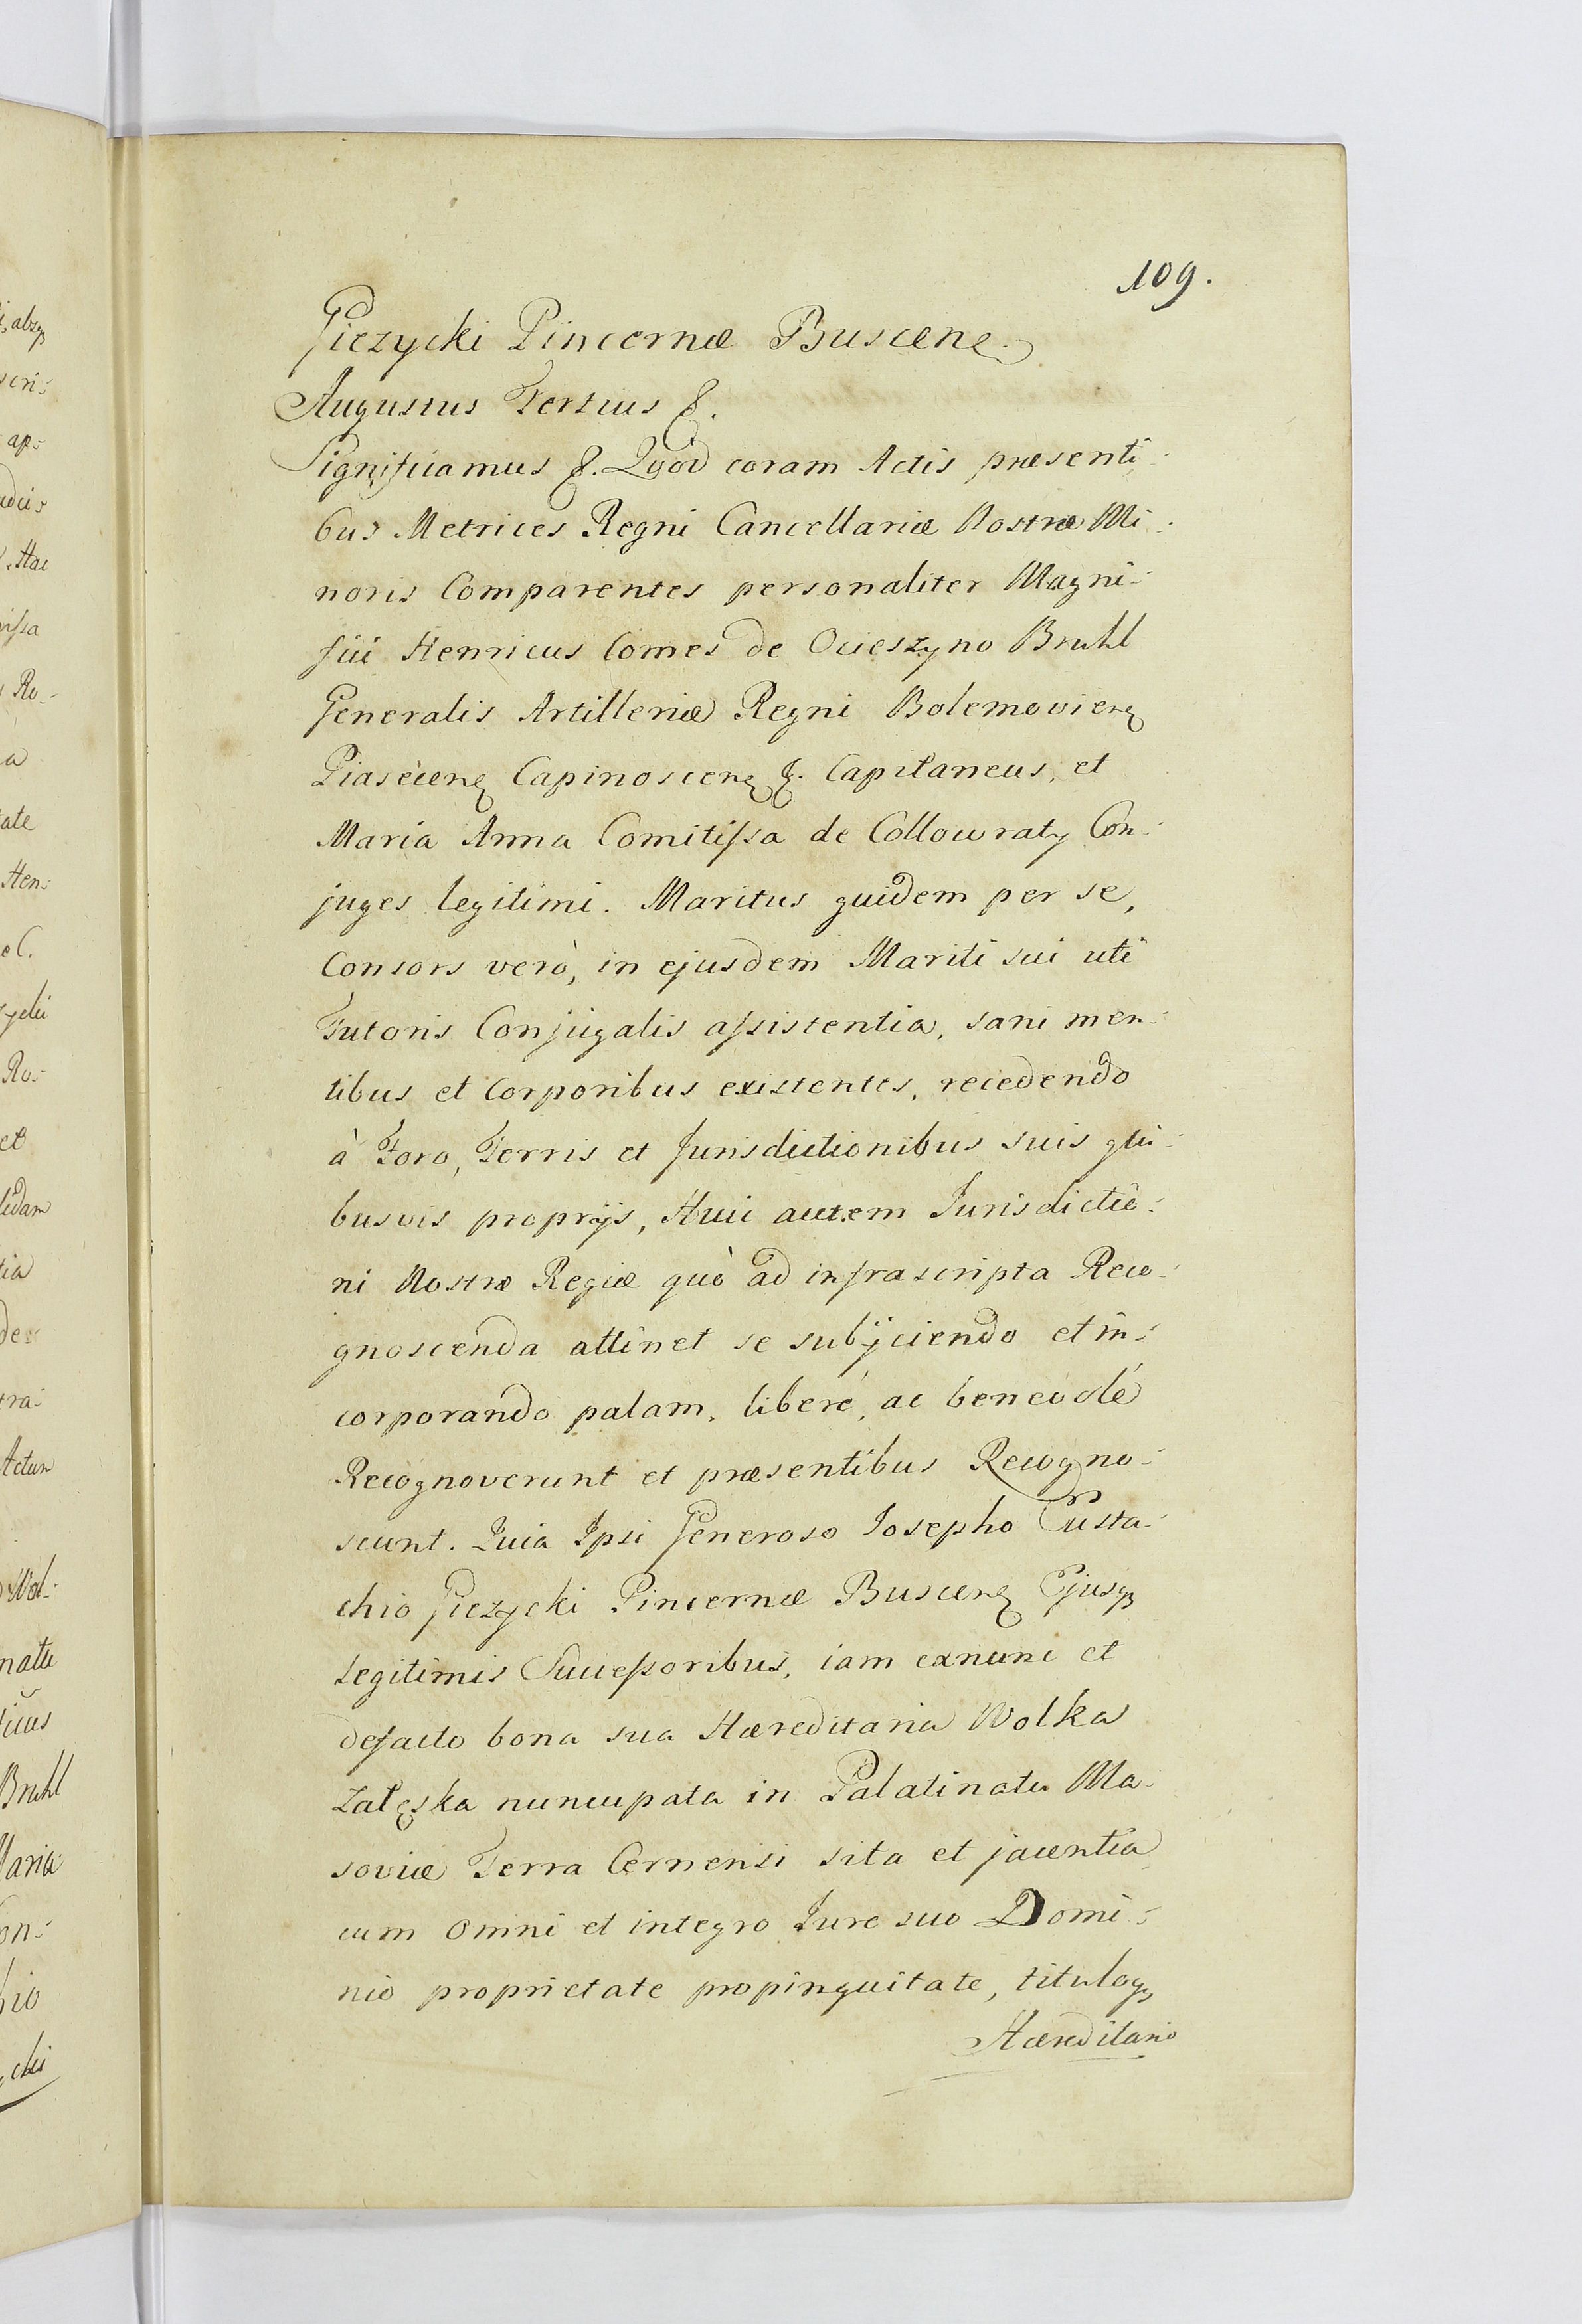 109.
Giezycki Pincernæ Buscenę
Augustus Tertius &.
Significamus &. Quod coram Actis præsenti-
bus Metrices Regni Cancellariæ Nostræ Mi-
noris Comparentes personaliter Magni-
fici Henricus Comes de Ocieszyno Bruhl
Generalis Artilleriæ Regni Bolemovienę
Piasecenę Capinoscenę &. Capitaneus, et
Maria Anna Comitissa de Collowraty Con-
juges legitimi. Maritus quidem per se,
Consors verò, in ejusdem Mariti sui uti
Tutoris Conjugalis assistentia, sani men-
tibus et Corporibus existentes, recedendo
à Foro, Terris et Jurisdictionibus suis qui-
busvis proprijs, Huic autem Jurisdictio-
ni Nostræ Regiæ quò ad infrascripta Reco-
gnoscenda attinet se subijciendo et in-
corporando palam, liberé, ac benevolé
Recognoverunt et præsentibus Recogno-
scunt. Quia Ipsi Generoso Josepho Eusta-
chio Giezycki Pincernæ Buscenę Ejusqꝫ
Legitimis Successoribus, iam exnunc et
defacto bona sua Hæreditaria Wolka
Załęska nuncupata in Palatinatu Ma-
soviæ Terra Cernensi sita et jacentia
cum omni et integro Jure suo Domi-
nio proprietate propinquitate, tituloqꝫ
Hæreditario